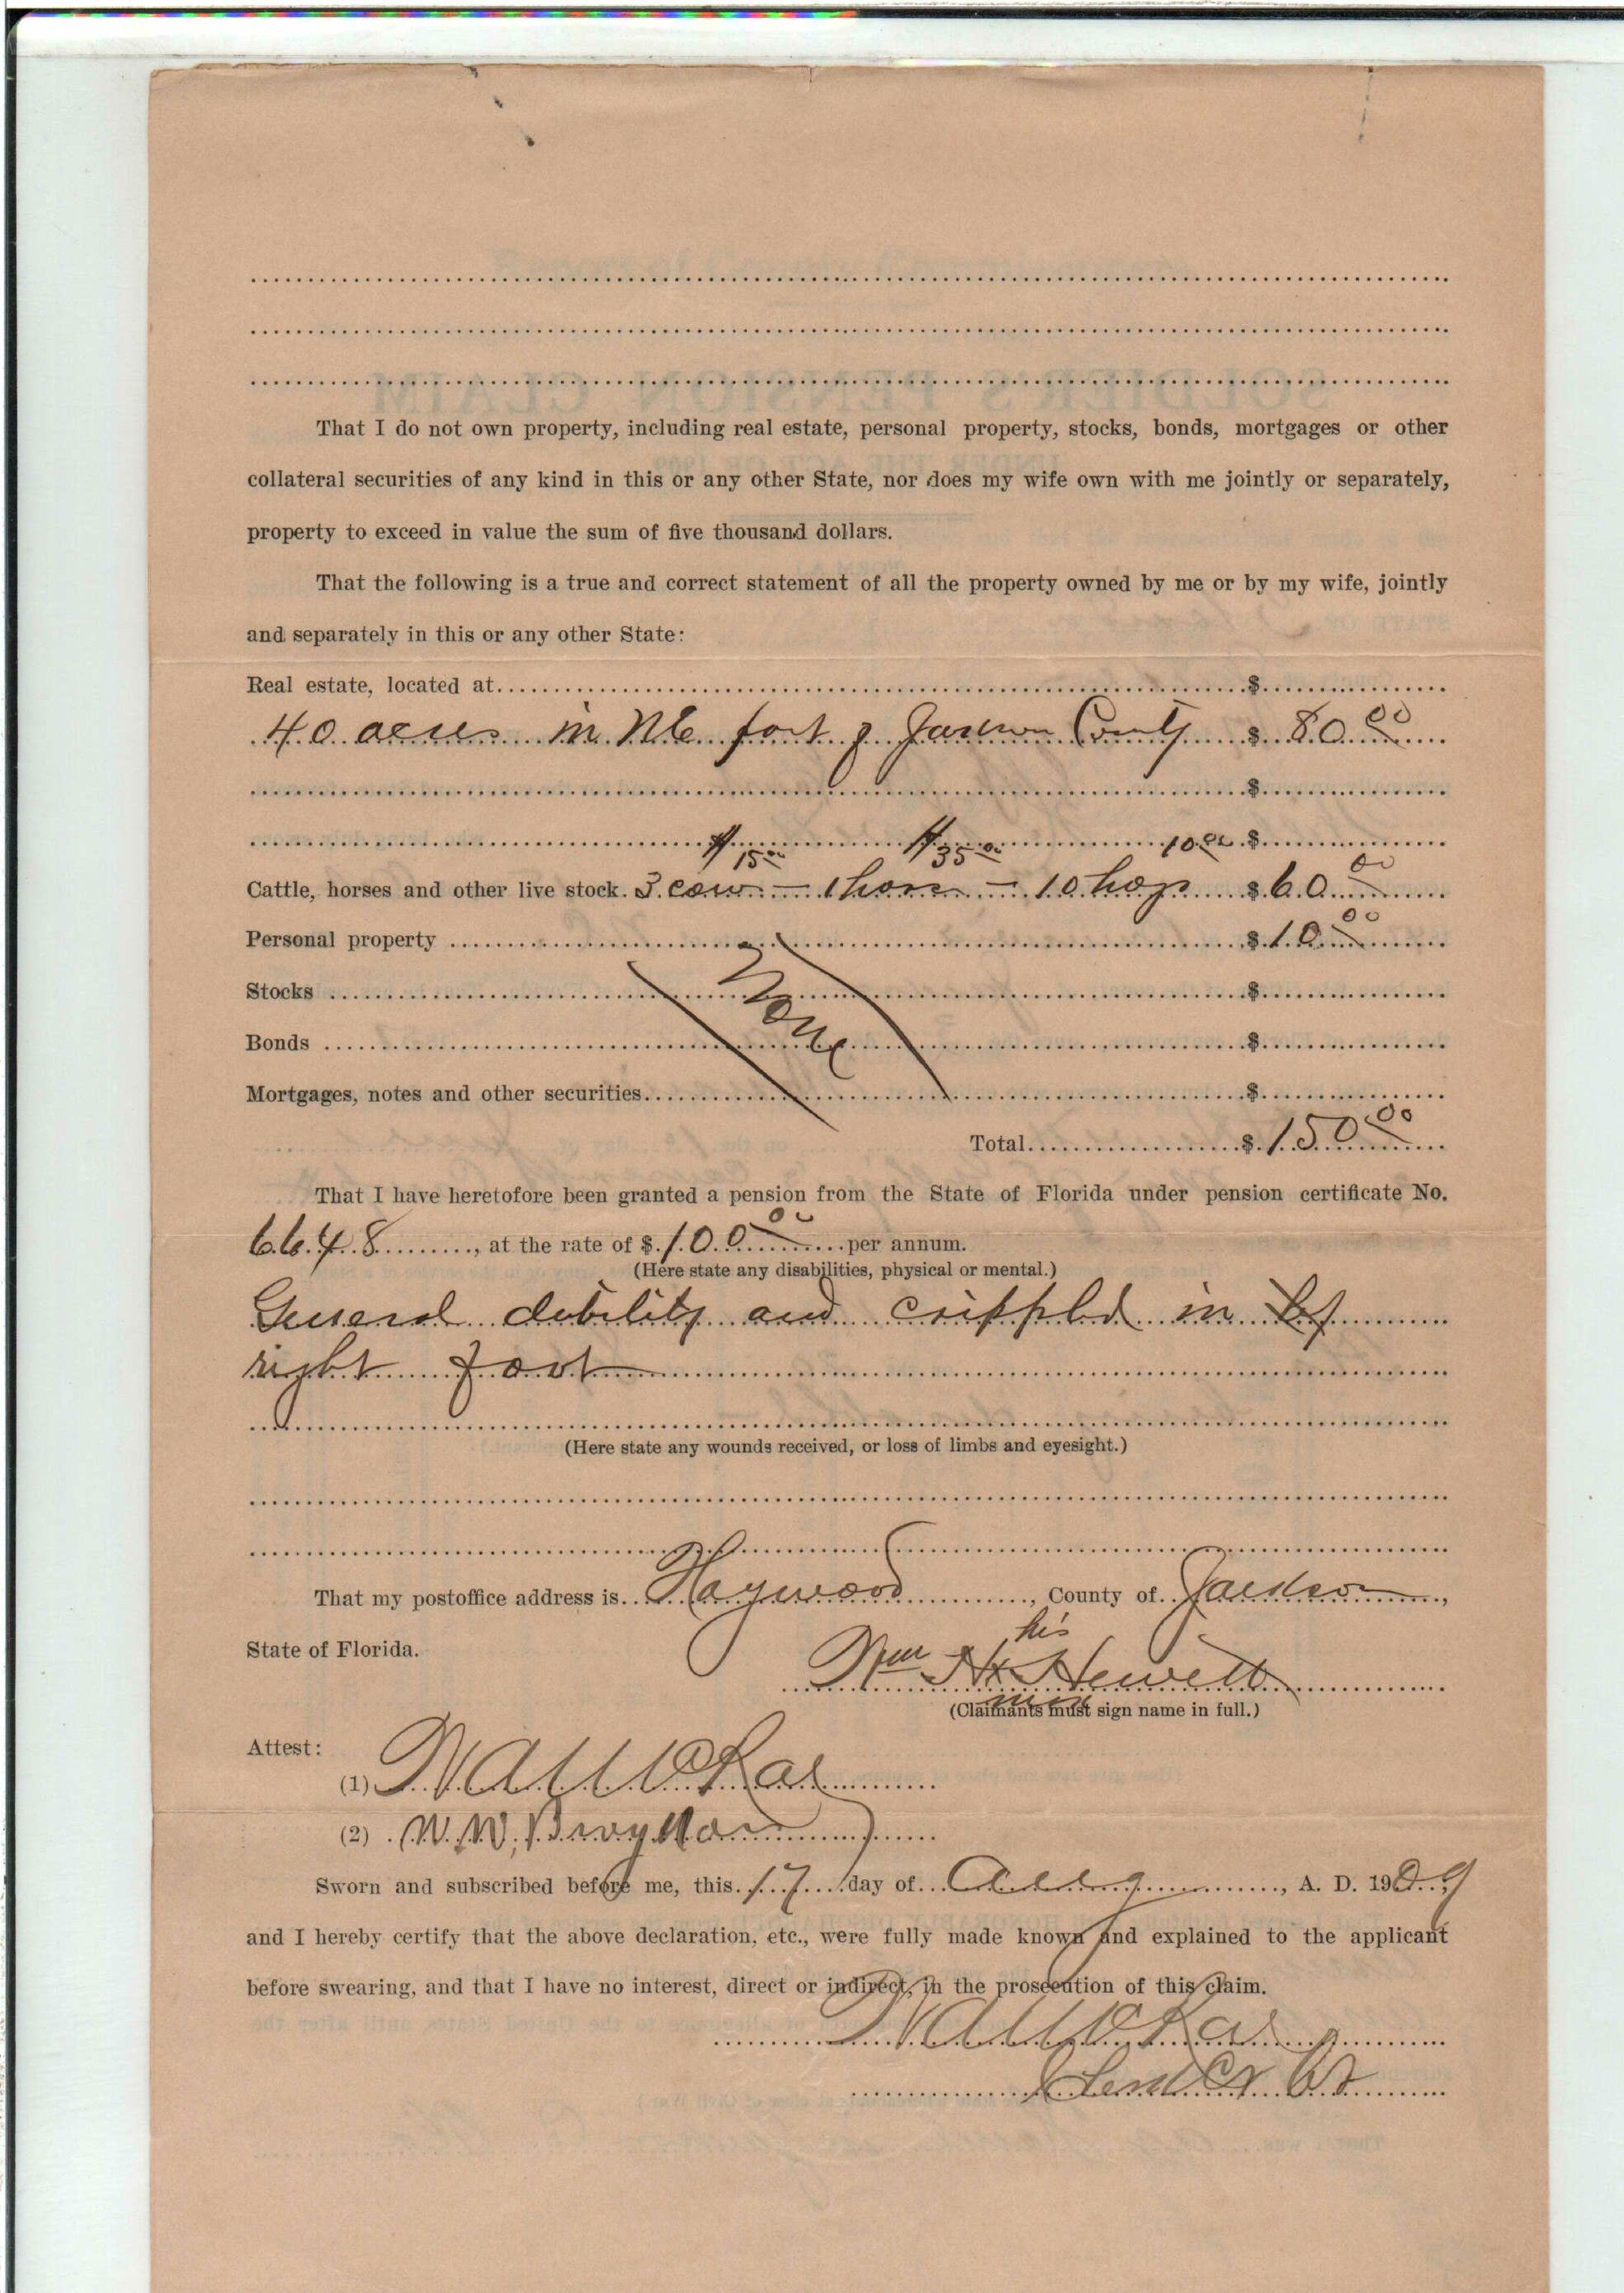 That I do not own property, including real estate, personal property, stocks, bonds, mortgages or other
collateral securities of any kind in this or any other State, nor does my wife own with me jointly or separately,
property to exceed in value the sum of five thousand dollars.
That the following is a true and correct statement of all the property owned by me or by my wife, jointly
and separately in this or any other State:
Real estate, located at $
40 acres in NE part of Jackson County $ 80.00
$
15.00 35.00 10.00 $
Cattle, horses and other live stock. 3 cow - 1 horse - 10 hogs $ 60.00
Personal property $ 10.00
Stocks $
None
Bonds $
Mortgages, notes and other securities $
Total $ 150.00
That I have heretofore been granted a pension from the State of Florida under pension certificate No.
6648, at the rate of $ 100.00 per annum.
(Here state any disabilities, physical or mental.)
General debility and crippled in
right foot
(Here state any wounds received, or loss of limbs and eyesight.)
That my postoffice address is Haywood, County of Jackson,
State of Florida.
his
Wm H x Hewett
mark
(Claimants must sign name in full.)
Attest:
(1)
(2) W. W.
Sworn and subscribed before me, this 17 day of Aug, A. D. 1909
and I hereby certify that the above declaration, etc., were fully made known and explained to the applicant
before swearing, and that I have no interest, direct or indirect, in the prosecution of this claim.
Clerk